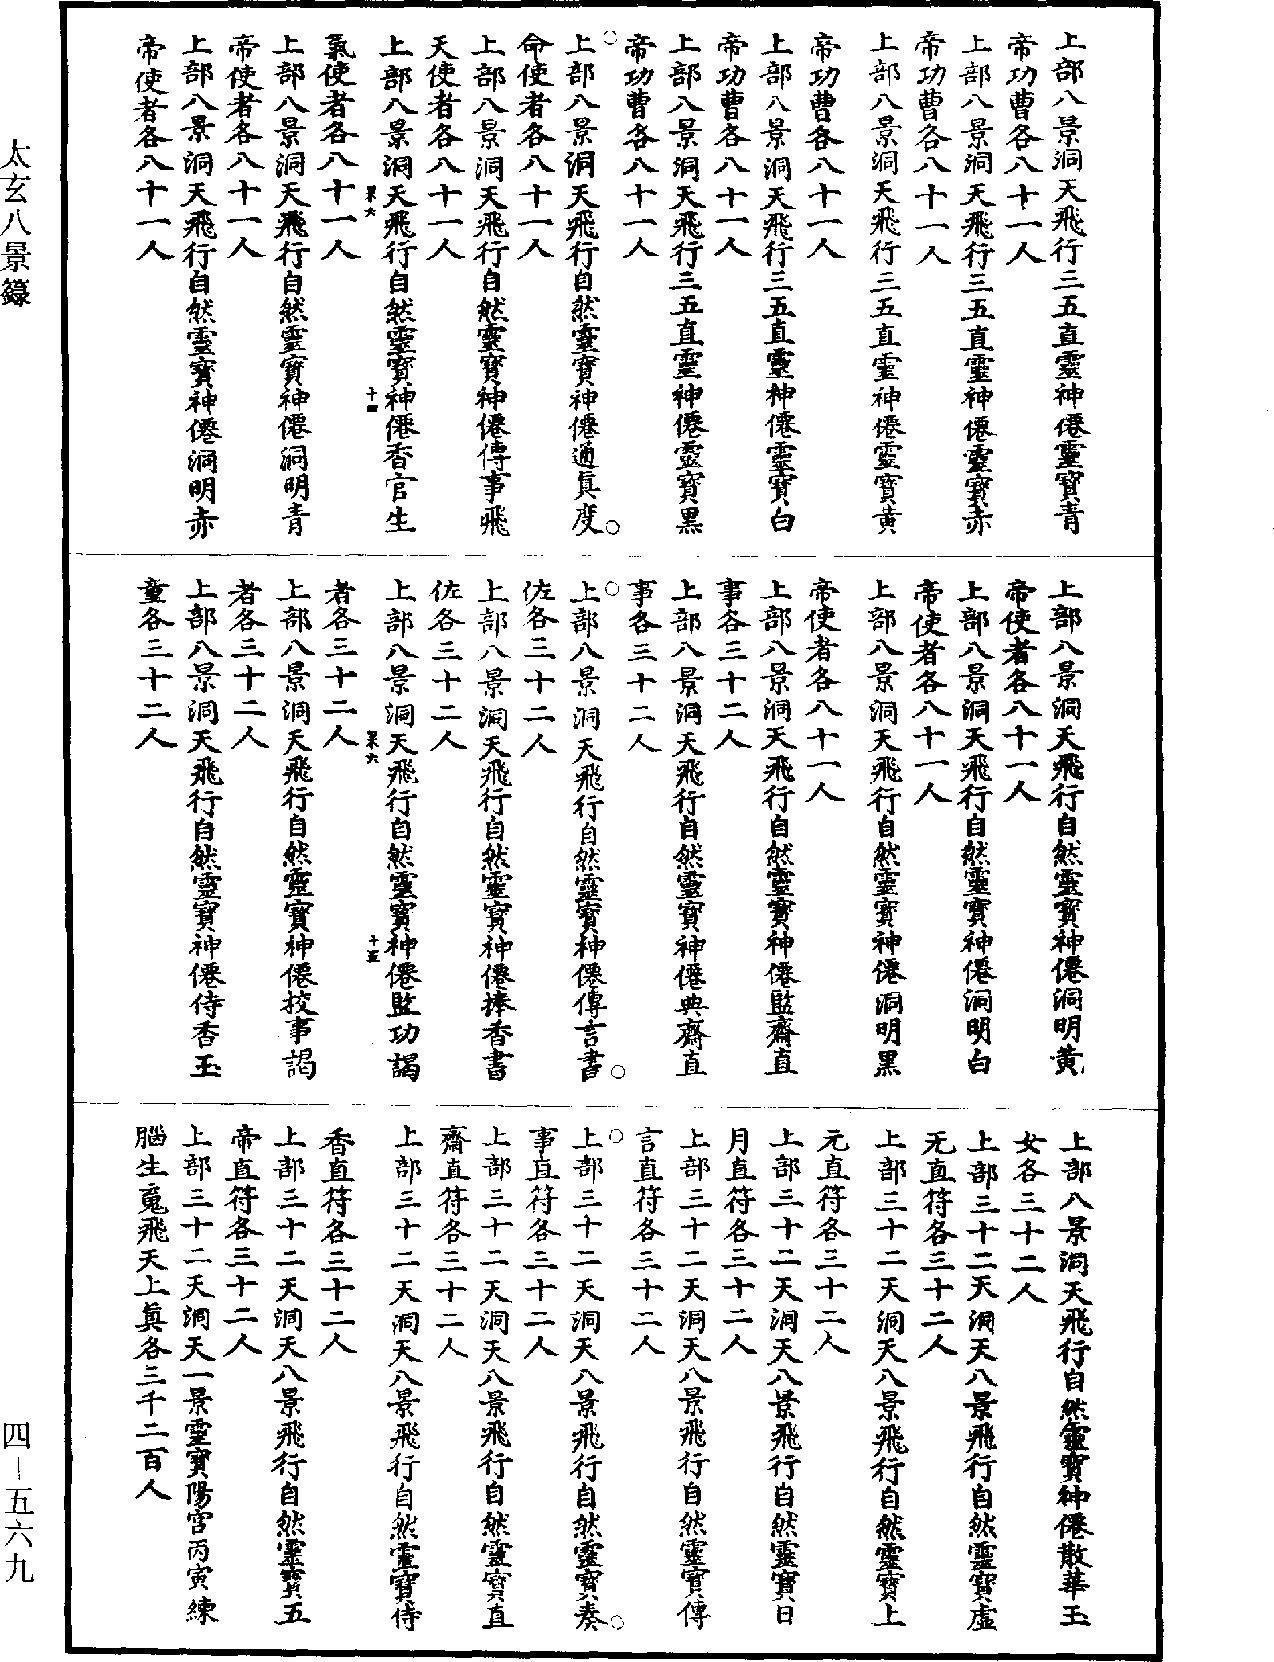 上部八景洞天飛行三五直靈神僊靈寶青
帝功曹各八十一人
上部八景洞天飛行三五直靈神僊靈寶赤
帝功曹各八十一人
上部八景洞天飛行三五直靈神僊靈寶黃
帝功曹各八十一人
上部八景洞天飛行三五直靈神僊靈寶白
帝功曹各八十一人
上部八景洞天飛行三五直靈神僊靈寶黑
帝功曹各八十一人
上部八景洞天飛行自然靈寶神僊通真度
命使者各八十一人
上部八景洞天飛行自然靈寶神僊傳事飛
天使者各八十一人
上部八景洞天飛行自然靈寶神僊香官生
果六 十四
氣使者各八十一人
上部八景洞天飛行自然靈寶神僊洞明青
帝使者各八十一人
上部八景洞天飛行自然靈寶神僊洞明赤
帝使者各八十一人
上部八景洞天飛行自然靈寶神僊洞明黃
帝使者各八十一人
上部八景洞天飛行自然靈寶神僊洞明白
帝使者各八十一人
上部八景洞天飛行自然靈寶神僊洞明黑
帝使者各八十一人
上部八景洞天飛行自然靈寶神僊監齋直
事各三十二人
上部八景洞天飛行自然靈寶神僊典齋直
事各三十二人
上部八景洞天飛行自然靈寶神僊傳言書
佐各三十二人
上部八景洞天飛行自然靈寶神僊捧香書
佐各三十二人
上部八景洞天飛行自然靈寶神僊監功謁
果六 十五
者各三十二人
上部八景洞天飛行自然靈寶神僊挍事謁
者各三十二人
上部八景洞天飛行自然靈寶神僊侍香玉
童各三十二人
上部八景洞天飛行自然靈寶神僊散華玉
女各三十二人
上部三十二天洞天八景飛行自然靈寶虛
无直符各三十二人
上部三十二天洞天八景飛行自然靈寶上
元直符各三十二人
上部三十二天洞天八景飛行自然靈寶日
月直符各三十二人
上部三十二天洞天八景飛行自然靈寶傳
言直符各三十二人
上部三十二天洞天八景飛行自然靈寶奏
事直符各三十二人
上部三十二天洞天八景飛行自然靈寶直
齋直符各三十二人
上部三十二天洞天八景飛行自然靈寶侍
香直符各三十二人
上部三十二天洞天八景飛行自然靈寶五
帝直符各三十二人
上部三十二天洞天一景靈寶陽宮丙寅練
腦生䰟飛天上真各三千二百人
太玄八景籙
四－五六九